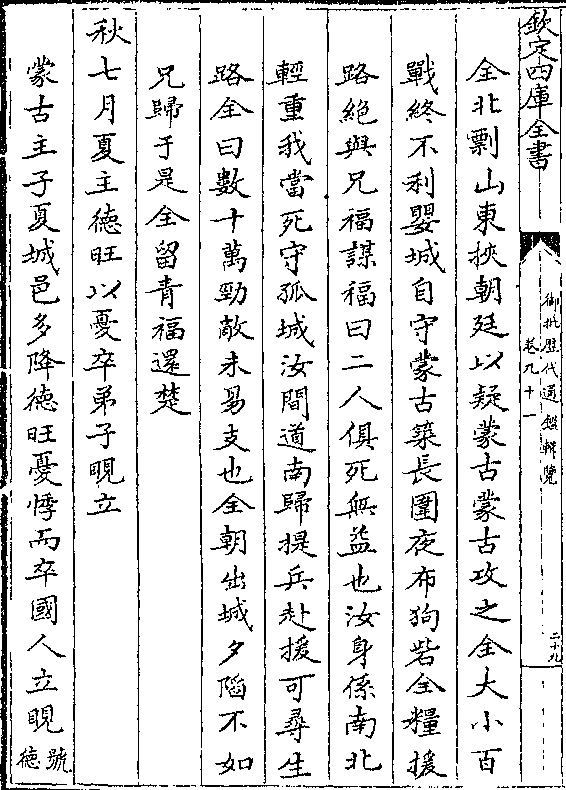 欽定四庫全書
御批歷代通鑑輯覽
卷九十一
二十九
全北剽山東挾朝廷以疑蒙古蒙古攻之全大小百
戰終不利嬰城自守蒙古築長圍夜布狗砦全糧援
路絕與兄福謀福曰二人俱死無益也汝身係南北
輕重我當死守孤城汝間道南歸提兵赴援可尋生
路全曰數十萬勁敵未易支也全朝出城夕陷不如
兄歸于是全留青福還楚
秋七月夏主德旺以憂卒弟子睍立
蒙古主子夏城邑多降德旺憂悸而卒國人立睍號
德